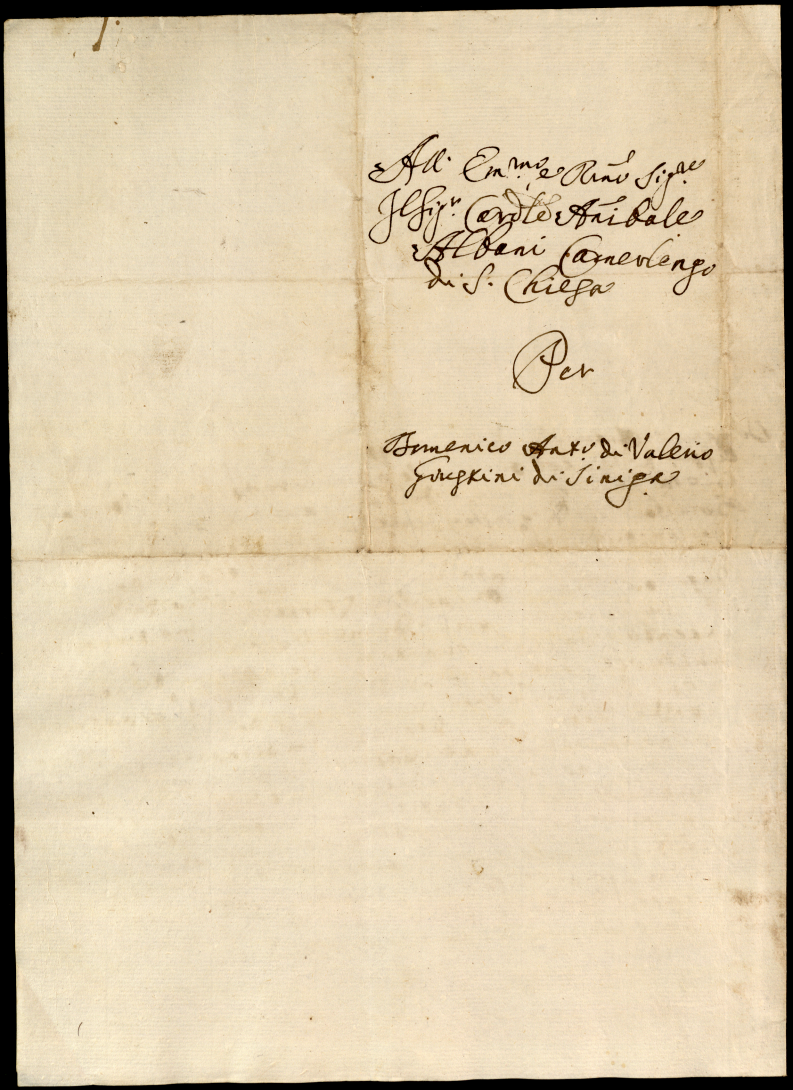 All' Em.mo e Rmo Sig.re
Il Sig.r Cardle Anibale
Albani Camerlengo
di S. Chiesa
Per
Domenico Ant.o di Valerio
Giustini di Siniga